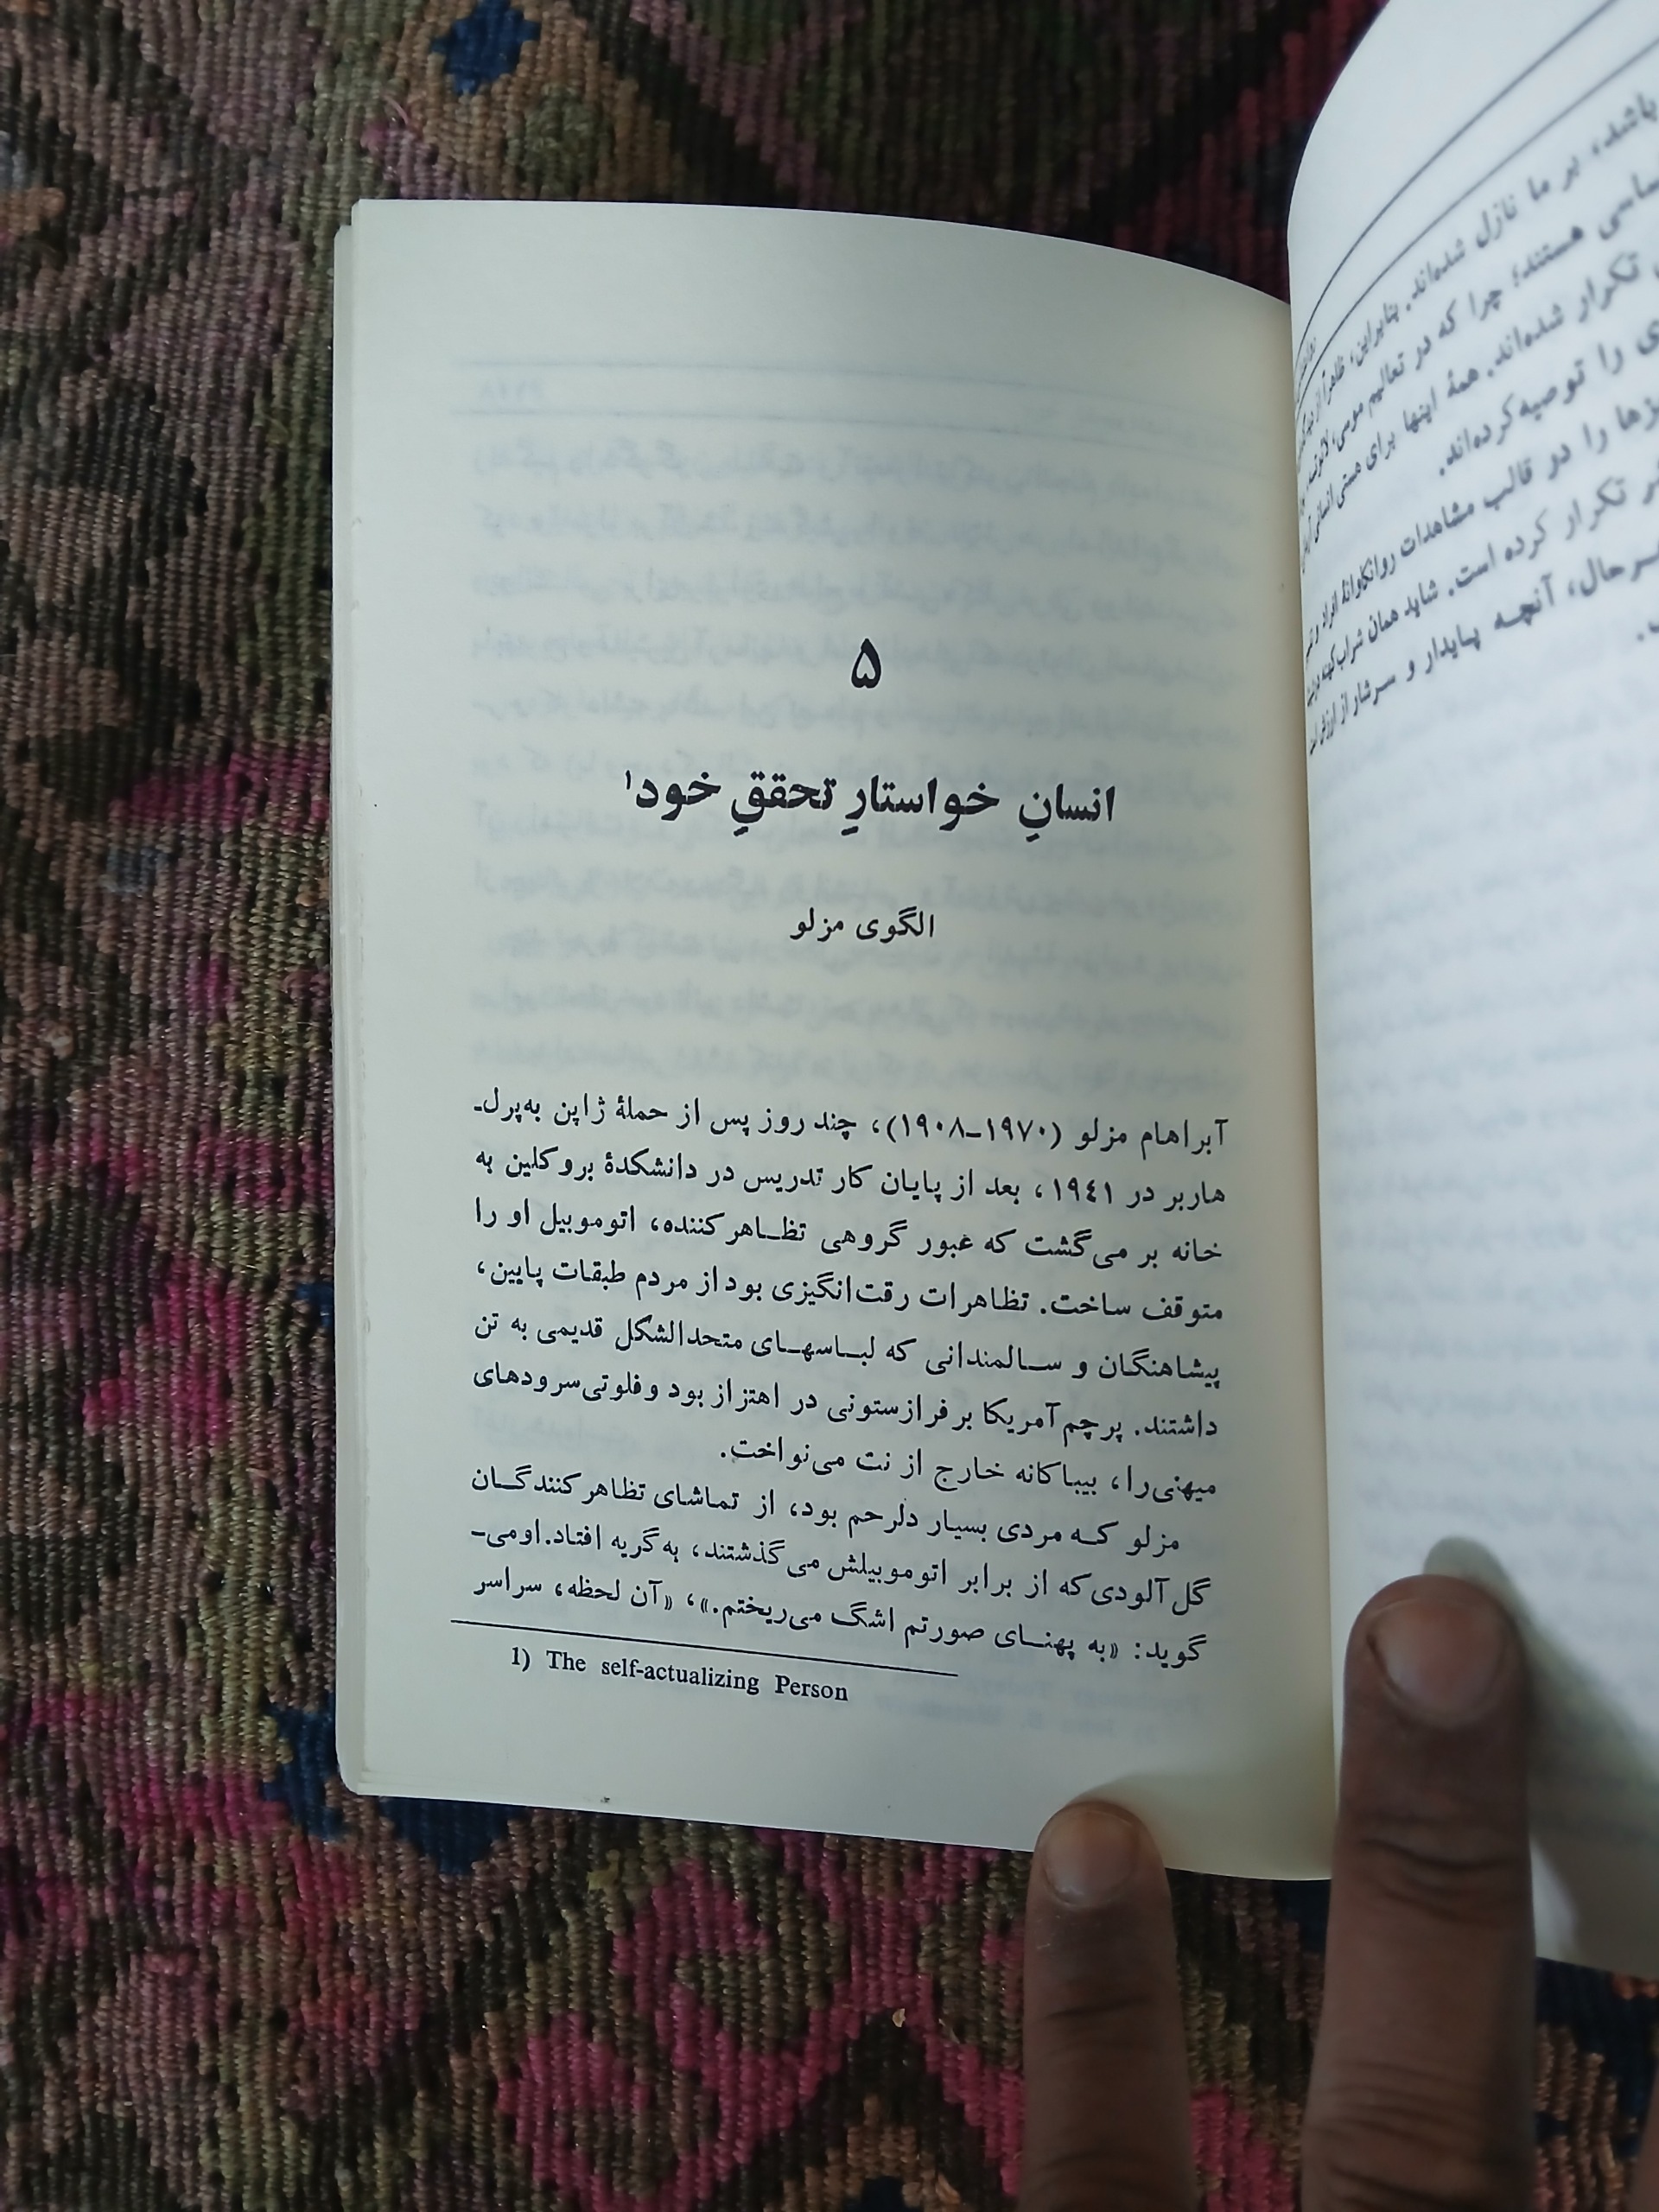 ۵
انسانِ خواستارِ تحققِ خود۱
الگوی مزلو
آبراهام مزلو (۱۹۷۰–۱۹۰۸)، چند روز پس از حملهٔ ژاپن به‌پرل‌ـ
هاربر در ۱۹۴۱، بعد از پایان کار تدریس در دانشکدهٔ بروکلین به
خانه بر می‌گشت که عبور گروهی تظـاهرکننده، اتوموبیل او را
متوقف ساخت. تظاهرات رقت‌انگیزی بود از مردم طبقات پایین،
پیشاهنگـان و سـالمندانی که لبـاسهـای متحدالشکل قدیمی به تن
داشتند. پرچم آمریکا بر فراز ستونی در اهتزاز بود و فلوتی سرودهای
میهنی را، بیباکانه خارج از نت می‌نواخت.
مزلو کـه مردی بسیار دلرحم بود، از تماشای تظاهرکنندگـان
گل‌آلودی که از برابر اتوموبیلش می‌گذشتند، به گریه افتاد. او می‌ـ
گوید: «به پهنـای صورتم اشگ می‌ریختم.»، «آن لحظه، سراسر
1) The self-actualizing Person
باشد، بر ما نازل شده‌اند. بنابراین، ظاهراً از
هستند؛ چرا که در تعالیم موسی،
تکرار شده‌اند. همهٔ اینها برای هستی انسانی
را توصیه کرده‌اند.
را در قالب مشاهدات روانکاوانهٔ افراد و
تکرار کرده است. شاید همان شراب کهنه
آنچـه پـایدار و سـرشار از ارزش است